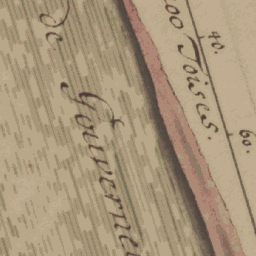 de Gouverne
00 Toises.
40.
60.